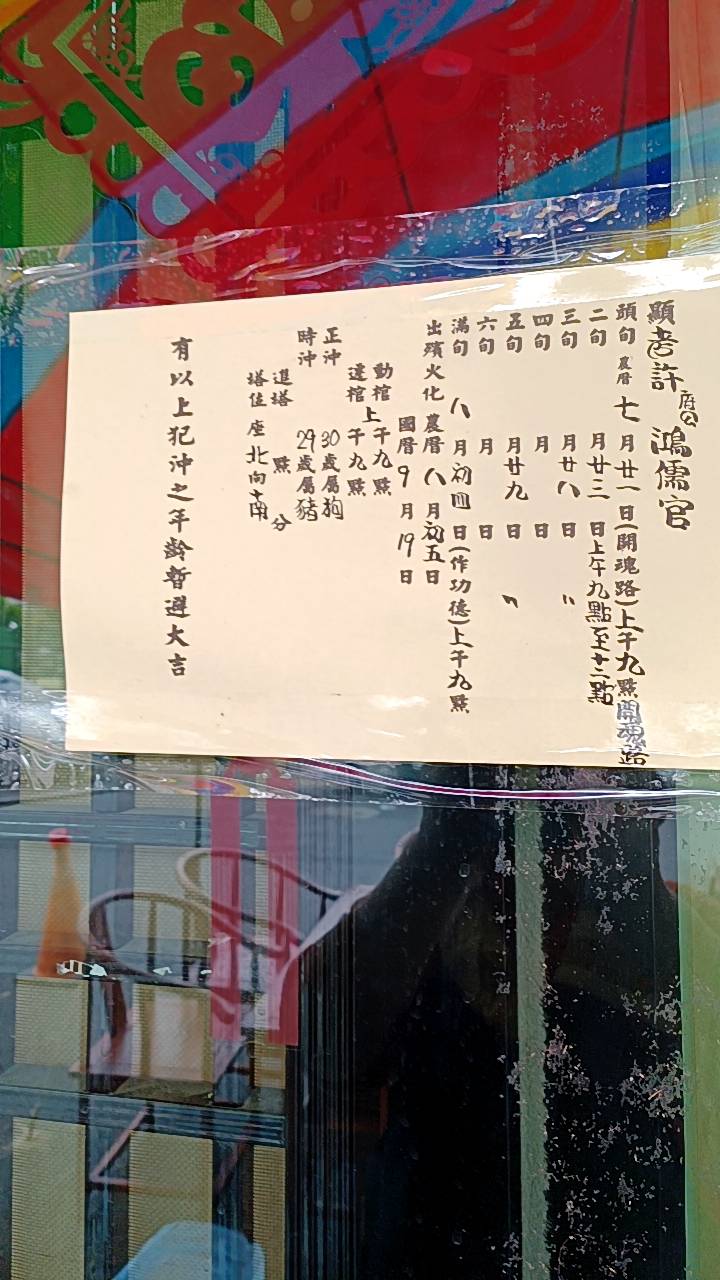 顯考許府公鴻儒官
頭旬 農曆 七月廿一日(開魂路)上午九點開魂路
二旬 月廿三日上午九點至十二點
三旬 月廿八日 〃
四旬 月 日
五旬 月廿九日 〃
六旬 月 日
滿旬 八月初四日(作功德)上午九點
出殯火化 農曆 八月初五日
國曆 9月19日
動棺 上午九點
進棺 午九點
正沖 30歲屬狗
時沖 29歲屬豬
進塔 點 分
塔位 座北向南
有以上犯沖之年齡暫避大吉